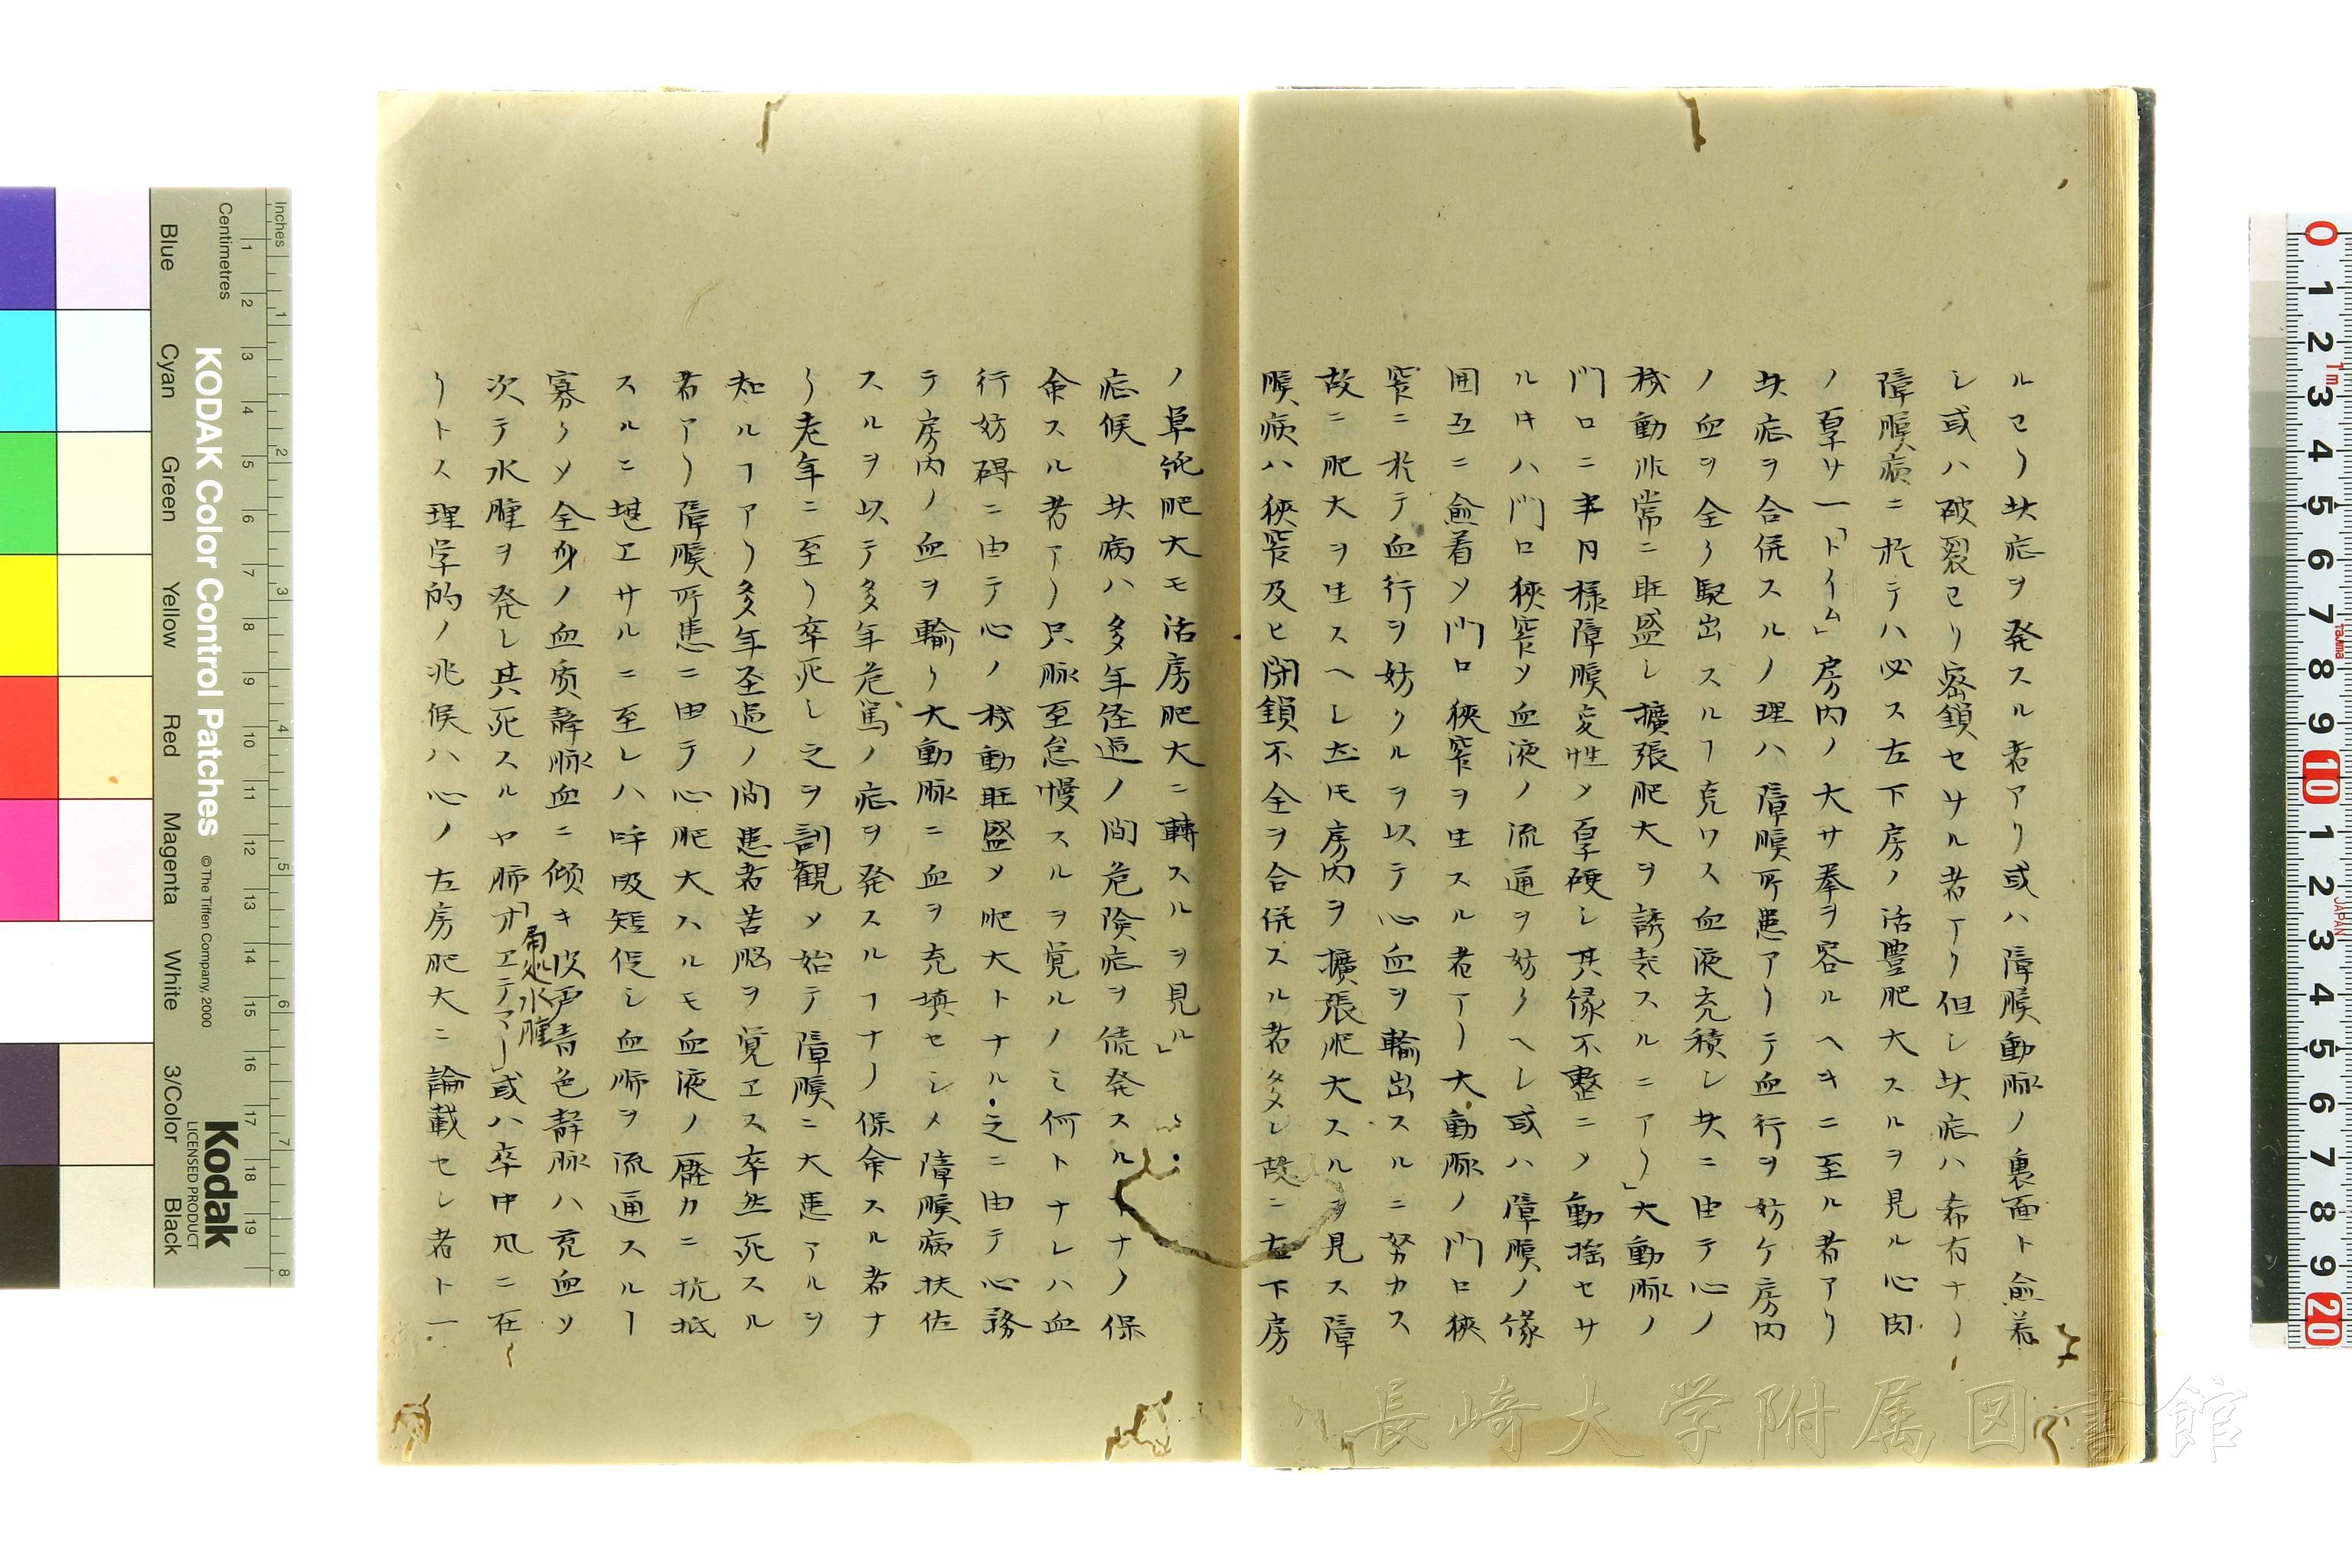 ルヿリ此症ヲ発スル者アリ或ハ障膜動脈ノ裏面ト愈着
シ或ハ破裂ヿリ密鎖セサル者アリ但シ此症ハ希有ナリ
障膜病ニ於テハ必ス左下房ノ活豊肥大スルヲ見ル心肉
ノ厚サ一「ドイム」房内ノ大サ拳ヲ容ルヘキニ至ル者アリ
此症ヲ合併スルノ理ハ障膜所患アリテ血行ヲ妨ケ房内
ノ血ヲ全ク駆出スルヿ克ワス血液充積シ此ニ由テ心ノ
機動非常ニ旺盛シ擴張肥大ヲ誘起スルニアリ」大動脈ノ
門口ニ半月様障膜変性〆厚硬シ其縁不整ニ〆動揺セサ
ルキハ門口狹窄〆血液ノ流通ヲ妨クヘシ或ハ障膜ノ縁
囲互ニ愈着〆門口狹窄ヲ生スル者アリ大動脈ノ門口狹
窄ニ於テ血行ヲ妨クルヲ以テ心血ヲ輸出スルニ努力ス
故ニ肥大ヲ生スヘシ𪜈房内ヲ擴張肥大スルヲ見ス障
膜病ハ狹窄及ヒ閉鎖不全ヲ合併スル者多シ故ニ左下房
ノ単純肥大モ活房肥大ニ轉スルヲ見ル」
症候 此病ハ多年経過ノ間危険症ヲ続発スルナリ保
命スル者アリ只脈至怠慢スルヲ覚ルノミ何トナレハ血
行妨碍ニ由テ心ノ機動旺盛〆肥大トナル之ニ由テ心務
テ房内ノ血ヲ輸リ大動脈ニ血ヲ充填セシメ障膜病扶佐
スルヲ以テ多年危篤ノ症ヲ発スルヿナク保命スル者ナ
リ老年ニ至リ卒死シ之ヲ剖観〆始テ障膜ニ大患アルヲ
知ルヿアリ多年至過ノ間患者苦悩ヲ覚エス卒然死スル
者アリ障膜所患ニ由テ心肥大スルモ血液ノ壓力ニ抗抵
スルニ堪エサルニ至レハ呼吸短促シ血肺ヲ流通スルヿ
寡ク〆全身ノ血质静脈血ニ傾キ皮膚青色静脈ハ充血〆
次テ水腫ヲ発シ其死スルヤ肺「オエデアー」或ハ卒中风ニ在
局処水腫
リトス理学的ノ兆候ハ心ノ左房肥大ニ論載セシ者ト一
長崎大学附属図書館
KODAK Color Control Patches
© The Tiffen Company, 2000
Kodak
LICENSED PRODUCT
Inches
Centimetres
Blue Cyan Green Yellow Red Magenta White 3/Color Black